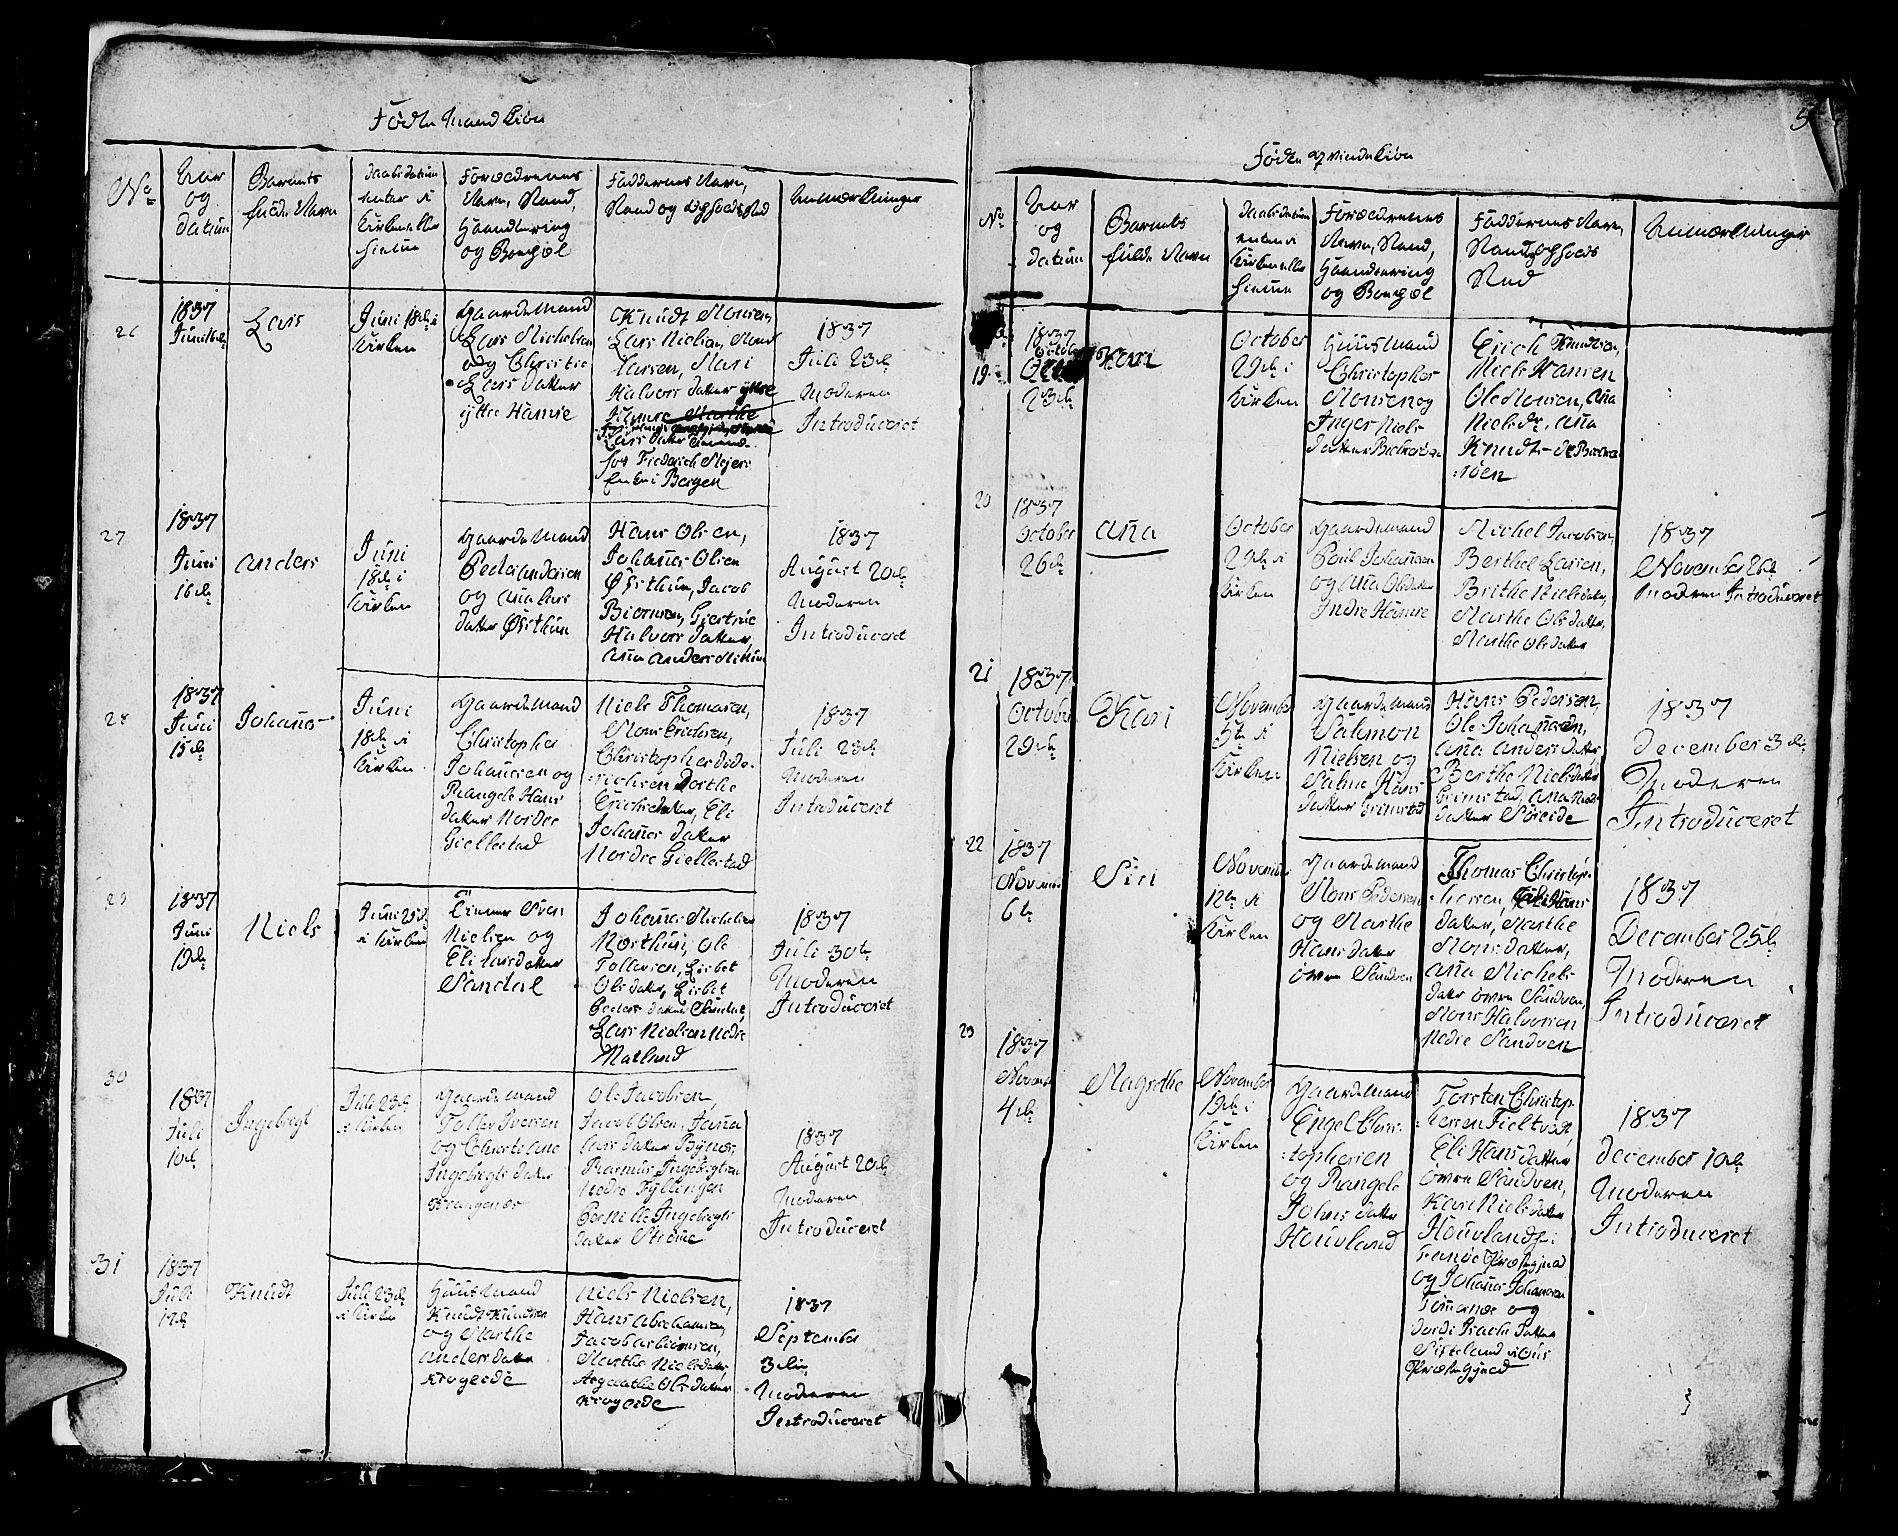 Fødte Mandkiøn
No
Aar
og
datum
Barnets
fulde Navn
Daabsdatum
enten i
Kirken eller
hiemme
Forældrenes
Navn, Stand,
Haandtering
og Boepæl
Faddernes Navn,
Stand og Opholdssted
Anmærkninger
26
1837
Juni
Lars
Juni 18de i
Kirken
Gaardemand
Lars Michelsen
og Christie
Lars datter
ÿttre Hamre
Knudt Monsen,
Lars Nielsen, Mons
Larsen, Mari
Halvors datter ÿttre
Hamre Marthe
Lars datter
hos Friderich Mejer
Enke i Bergen
1837
Juli 23de
Moderen
Introduceret
27
1837
Juni
16de
Anders
Juni
18de i
Kirken
Gaardemand
Peder Andersen
og Ana Lars
datter Østhun
Hans Olsen,
Johanes Olsen
Østhun, Jacob
Biørnsen, Giertrue
Halvors datter,
Ana Anders
1837
August 20de
Moderen
Introduceret
28
1837
Juni
15de
Johanes
Juni
18de i
Kirken
Gaardemand
Christopher
Johanesen og
Rangele Hans
datter Nordre
Giellestad
Niels Thomasen,
Mons Erichsen,
Christopher Dide-
richsen Dorthe
Erichsdatter, Eli
Johanes datter
Nordre Giellestad
1837
Juli 23de
Moderen
Introduceret
29
1837
Juni
19de
Niels
Juni 25de
i Kirken
Svend
Nielsen og
Eli Larsdatter
Sandal
Johanes Michelsen
Northun, Ole
Tollevsen, Lisbet
Olsdatter, Lisbet
Peders datter Sandal,
Lars Nielsen Nedre
Natland
1837
Juli 30te
Moderen
Introduceret
30
1837
Juli
10de
Ingebrigt
Juli 23de
i Kirken
Gaardemand
Tollev Iversen
og Christiane
Ingebrigts datter
Krangenæs
Ole Jacobsen,
Jacob Olsen, Jana
Lars datter Bÿnæs,
Rasmus Ingebrigtsen
Nedre Fÿllingen
Pernille Ingebrigts
datter Strøme
1837
August 20de
Moderen
Introduceret
31
1837
Juli
17de
Knudt
Juli 23de
i Kirken
Huusmand
Knudt Knudsen
og Marthe
Anders datter
Krogeide
Niels Nielsen,
Hans Abrahamsen,
Jacob Asbiørnsen,
Marthe Nielsdatter,
Aagaathe Ols datter
Krogeide
1837
September
3die
Moderen
Introduceret
5
Fødte Qvindekiøn
No
Aar
og
datum
Barnets
fulde Navn
Daabsdatum
enten i
Kirken eller
hiemme
Forældrenes
Navn, Stand,
Haandtering
og Boepæl
Faddernes Navn,
Stand og Opholds
Sted
Anmærkninger
19
1837
October
23de
Kari
October
29de i
Kirken
Huusmand
Christopher
Monsen og
Inger Niels
datter
Erich Knudsen,
Niels Hansen
Ole Monsen, Ana
Nielsdr, Ana
Knudts-
20
1837
October
26de
Ana
October
29de i
Kirken
Gaardemand
Poul Johanesen
og Ana Olsdatter
Indre Hamre
Michel Jacobsen,
Berthel Larsen,
Brithe Nielsdatter,
Marthe Olsdatter,
Marthe Olsdatter
1837
November 26de
Moderen Introduceret
21
1837
October
29de
Kari
November
5te i
Kirken
Gaardemand
Salamon
Nielsen og
Sælne Hans
datter Grimstad
Hans Pedersen,
Ole Johanesen,
Ana Anders datter,
Berthe Nielsdatter
Grimstad, Ana Niels
datter Søreide
1837
December 3de
Moderen
Introduceret
22
1837
November
6te
Siri
November
12te i
Kirken
Gaardemand
Mons Pedersen
og Marthe
Hansdatter
øvre Sandven
Thomas Christop-
hersen, Eli Hans
datter, Marthe
Mons datter,
Ana Michels
datter øvre Sandven,
Mons Halvorsen
Nedre Sandven
1837
December 25de
Moderen
Introduceret
23
1837
November
4de
Magrethe
November
19de i
Kirken
Gaardemand
Engel Chris-
tophersen
og Rangele
Johns datter
Houvland
Torsten Christop-
hersen Tieltvedt,
Eli Hans datter
øvre Sandven,
Kari Nielsdatter
Houvland, i
Fanøe Præstegjæld
og Johanes Johanesen
Tømernæs og
Dordi Isachs datter
i Ous
Præstegjæld
1837
December 10de
Moderen
Introduceret